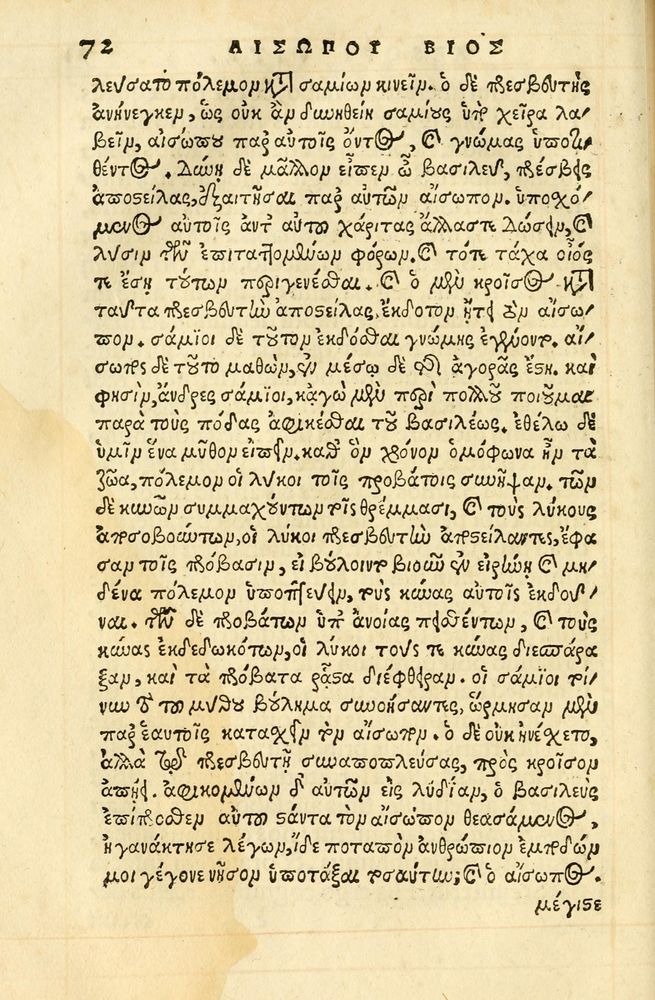 72 ΑΙΣΩΠΟΥ ΒΙΟΣ
λεύσατο πόλεμον κατὰ σαμίων κινεῖν. ὁ δὲ πρεσβευτὴς
ἀνήνεγκεν, ὡς οὐκ ἂν δυνηθείη σαμίους ὑπὸ χεῖρα λα/
βεῖν, αἰσώπου παρ' αὐτοῖς ὄντος, καὶ γνώμας ὑποτι/
θέντος. Δύνῃ δὲ μᾶλλον εἶπεν ὦ βασιλεῦ, πρέσβεις
ἀποστείλας, ἐξαιτῆσαι παρ' αὐτῶν αἴσωπον. ὑποσχό/
μενος αὐτοῖς ἀντ' αὐτοῦ χάριτας ἄλλας τε δώσειν, καὶ
λύσιν τῶν ἐπιταττομένων φόρων. καὶ τότε τάχα οἷός
τε ἔσῃ τούτων περιγενέσθαι. καὶ ὁ μὲν κροῖσος κατὰ
ταῦτα πρεσβευτὴν ἀποστείλας, ἔκδοτον ᾔτει τὸν αἴσω/
πον. σάμιοι δὲ τοῦτον ἐκδόσθαι γνώμης ἐγένοντο. αἴ/
σωπος δὲ τοῦτο μαθὼν, ἐν μέσῳ δὲ τῆς ἀγορᾶς ἔστη. καί
φησιν, ἄνδρες σάμιοι, κἀγὼ μὲν περὶ πολλοῦ ποιοῦμαι
παρὰ τοὺς πόδας ἀφικέσθαι τοῦ βασιλέως. ἐθέλω δὲ
ὑμῖν ἕνα μῦθον εἰπεῖν. καθ' ὃν χρόνον ὁμόφωνα ἦν τὰ
ζῶα, πόλεμον οἱ λύκοι τοῖς προβάτοις συνῆψαν. τῶν
δὲ κυνῶν συμμαχούντων τοῖς θρέμμασι, καὶ τοὺς λύκους
ἀποσοβούντων, οἱ λύκοι πρεσβευτὴν ἀποστείλαντες, ἔφα
σαν τοῖς προβάσιν, εἰ βούλοιντο βιοῦν ἐν εἰρήνῃ καὶ μη/
δένα πόλεμον ὑποπτεύειν, τοὺς κύνας αὐτοῖς ἐκδοῦ/
ναι. τῶν δὲ προβάτων ὑπ' ἀνοίας πεισθέντων, καὶ τοὺς
κύνας ἐκδεδωκότων, οἱ λύκοι τούς τε κύνας διεσπάρα
ξαν, καὶ τὰ πρόβατα ῥᾷστα διέφθειραν. οἱ σάμιοι τοί/
νυν τὸ τοῦ μύθου βούλημα συνοήσαντες, ὥρμησαν μὲν
παρ' ἑαυτοῖς κατασχεῖν τὸν αἴσωπον. ὁ δὲ οὐκ ἠνέσχετο,
ἀλλὰ τῷ πρεσβευτῇ συναποπλεύσας, πρὸς κροῖσον
ἀπῄει. ἀφικομένων δ' αὐτῶν εἰς λύδίαν, ὁ βασιλεὺς
ἐπίπροσθεν αὐτοῦ στάντα τὸν αἴσωπον θεασάμενος,
ἠγανάκτησε λέγων, ἴδε ποταπὸν ἀνθρώπιον ἐμποδών
μοι γέγονε νῆσον ὑποτάξαι τοσαύτην; καὶ ὁ αἴσωπος.
μέγιστε